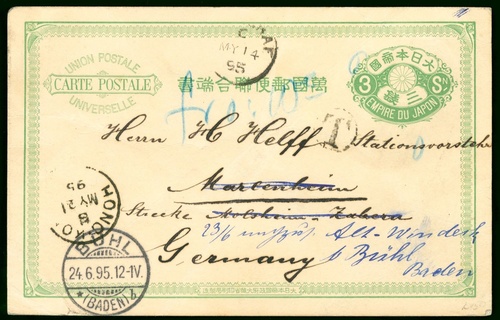 MY 14
95
UNION POSTALE
CARTE POSTALE
UNIVERSELLE
書端合聯便郵國萬
大日本帝國
3 Sn
三錢
EMPIRE DU JAPON
T
Herrn H Helff Stationsvorsteher
Marlenheim
Strecke Molsheim-Zabern
23/6 Alt-Windeck
Germany b Bühl
Baden
HONG KONG
B
MY 21
95
BÜHL
24.6.95.12-1V.
* (BADEN) *